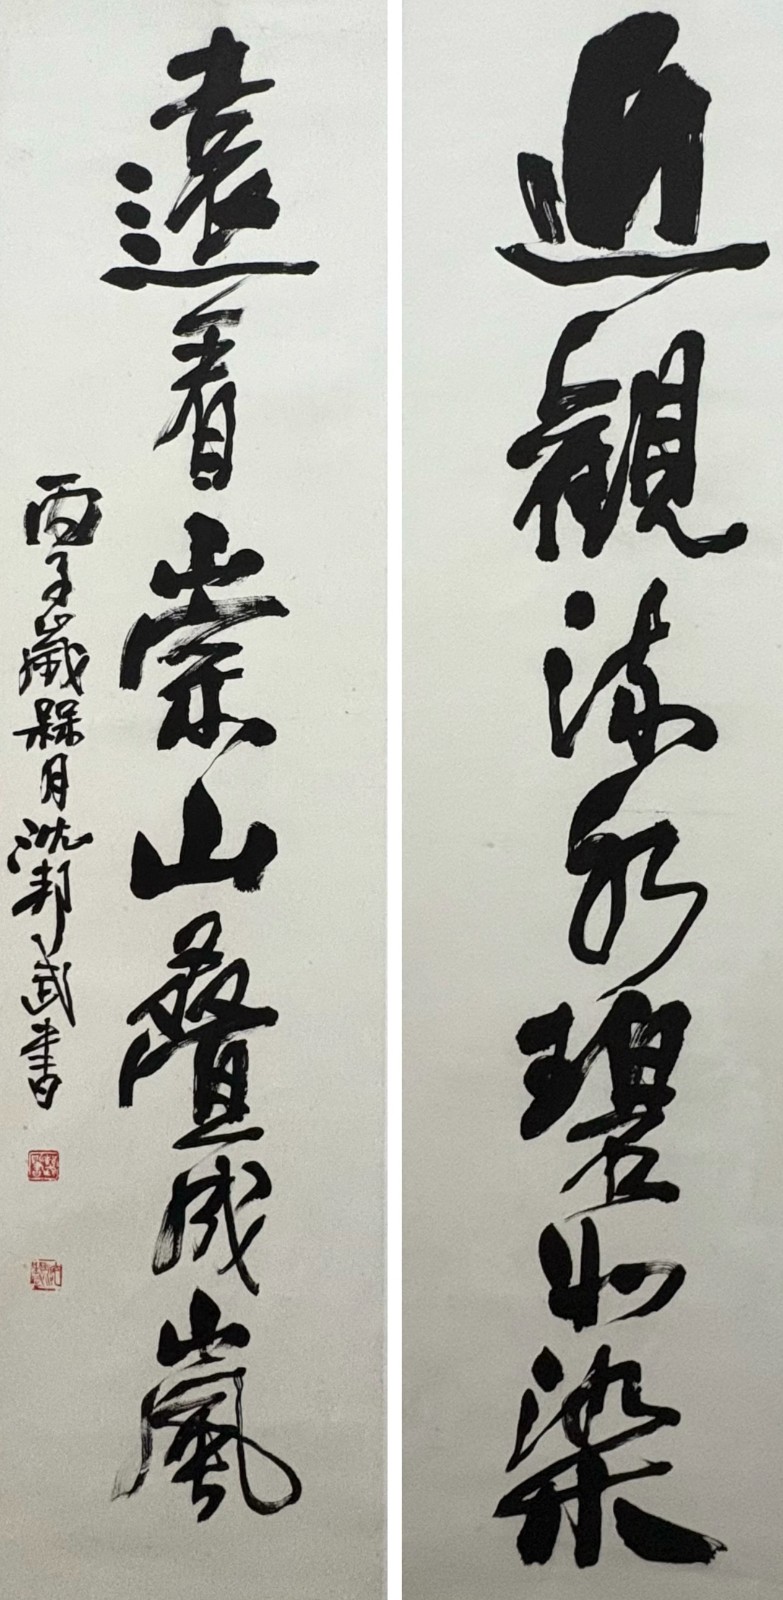 近觀流水碧如染
遠看崇山疊成嵐
丙子歲槑月沈邦武書